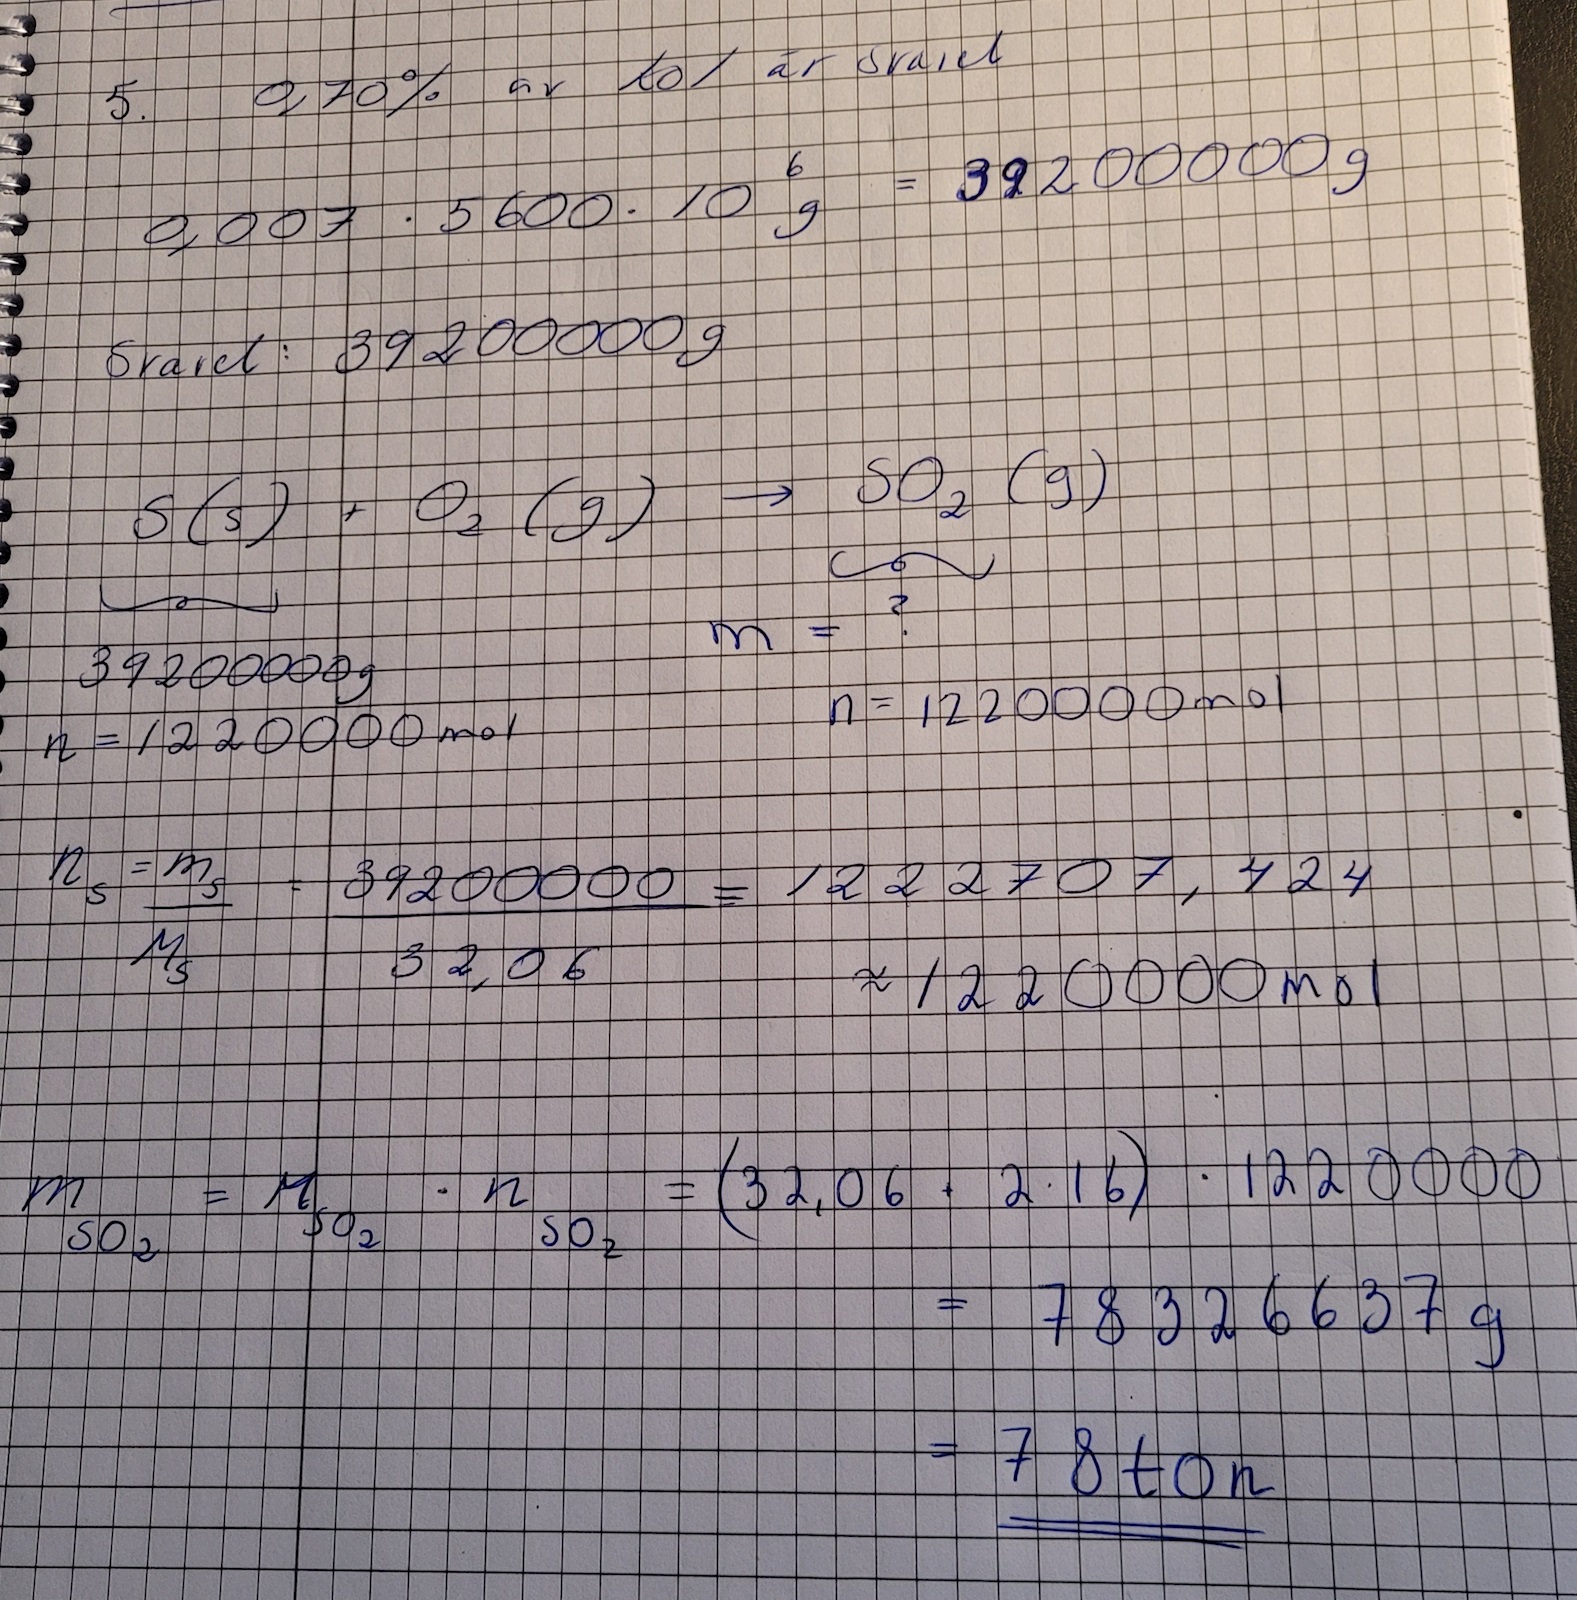 5. 0,70% av kol är svavel
0,007 · 5600 · 10⁶ g = 39200000g
Svavel: 39200000g
S(s) + O₂(g) → SO₂(g)
m = ?
39200000g
n = 1220000mol n = 1220000mol
nₛ = mₛ/Mₛ = 39200000/32,06 = 1222707,424
≈ 1220000mol
m_SO₂ = M_SO₂ · n_SO₂ = (32,06 + 2·16) · 1220000
= 78326637g
= 78ton